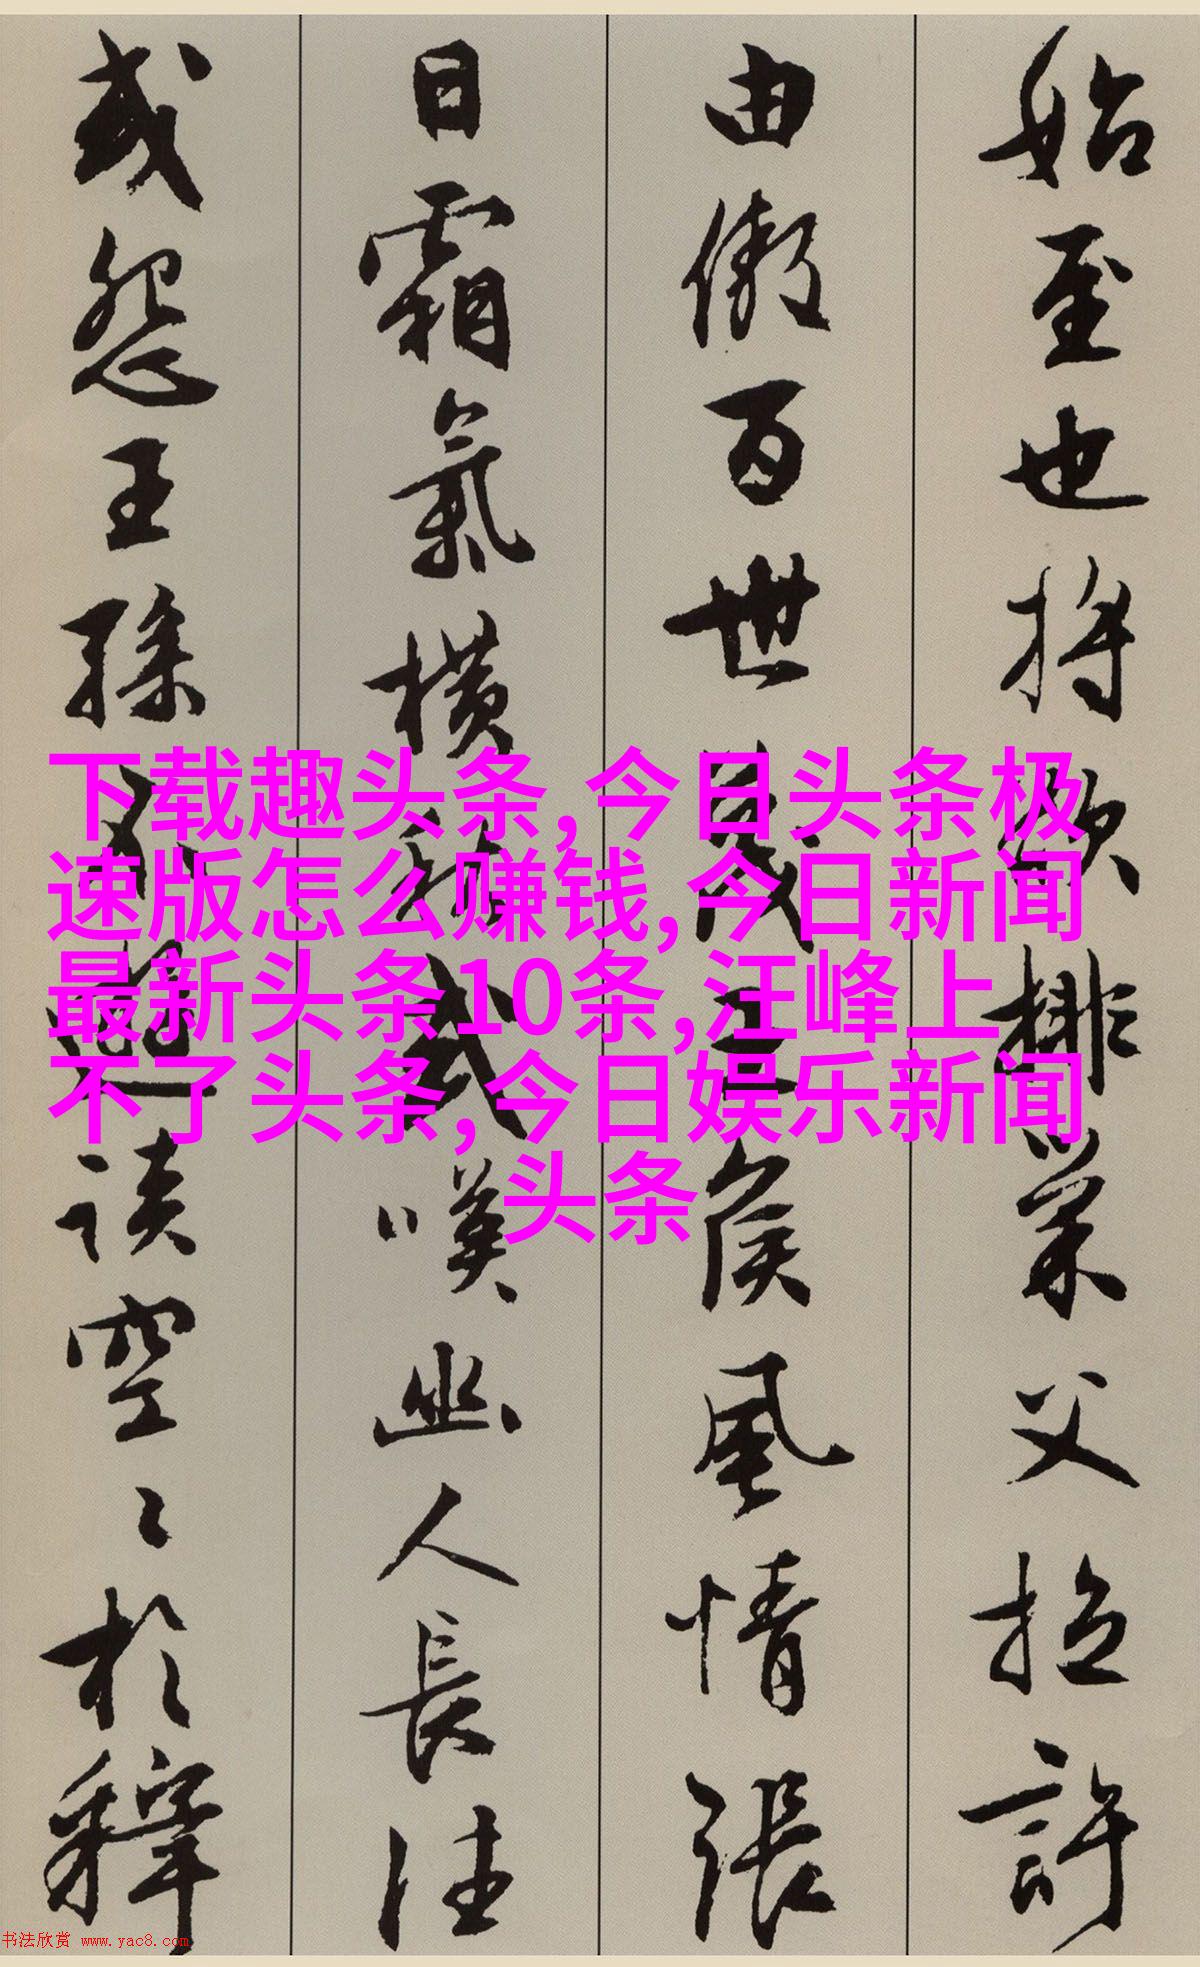 始至也将欲排巢父拉許
由傲百世蔑王侯風情張
日霜氣橫秋或嘆幽人長往
或怨王孫不遊談空〻於釋
下载趣头条,今日头条极
速版怎么赚钱,今日新闻
最新头条10条,汪峰上
不了头条,今日娱乐新闻
头条
书法欣赏 www.yac8.com